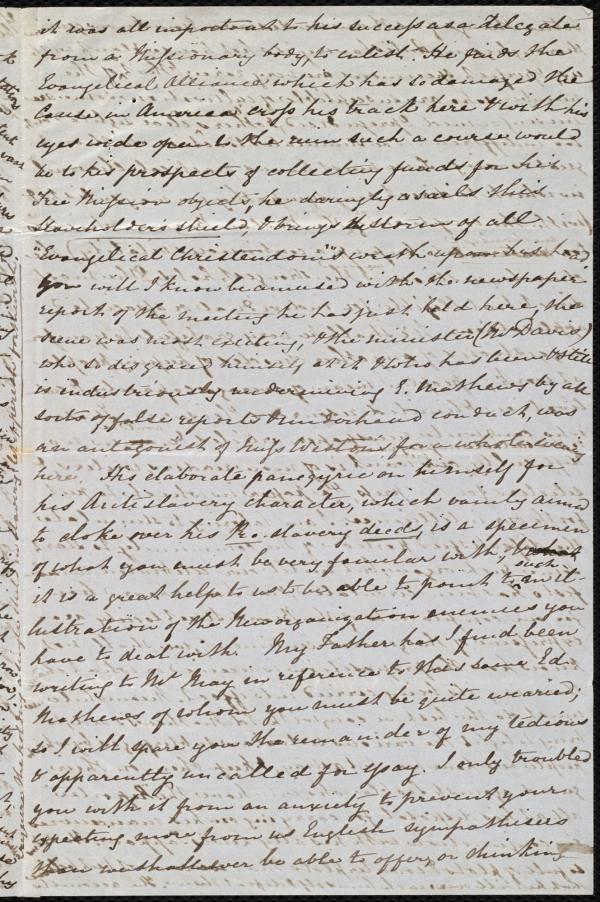 it was all important to his success as a Delegate
from a Missionary body, to enlist. He finds the
Evangelical Alliance which has so damaged the
Cause in America cross his track here & with his
eyes wide open to the ruin such a course would
be to his prospects of collecting funds for his
Free Mission objects, he daringly assails this
slaveholder's shield, & brings the storm of all
"Evangelical Christendom's" wrath upon his head
You will I know be amused with the newspaper
report of the meeting he had just held here, the
scene was most exciting, & the minister (Mr Davis)
who so disgraced himself at it & who has been & still
is industriously undermining E. Mathews by all
sorts of false reports & underhand conduct, was
an antagonist of Miss Weston's for a whole evening
here. His elaborate panegyric on himself for
his Antislavery character, which vainly aimed
to cloke over his Pro. slavery deeds, is a specimen
of what you must be very familiar with, &
it is a great help to us to be able to point to such an il-
lustration of the New organization enemies you
have to deal with. My Father has I find been
writing to Mr May in reference to this same Ed.
Mathews of whom you must be quite wearied;
so I will spare you the remainder of my tedious
& apparently uncalled for essay. I only troubled
you with it from an anxiety to prevent your
expecting more from us English sympathisers
than we shall ever be able to offer, or thinking